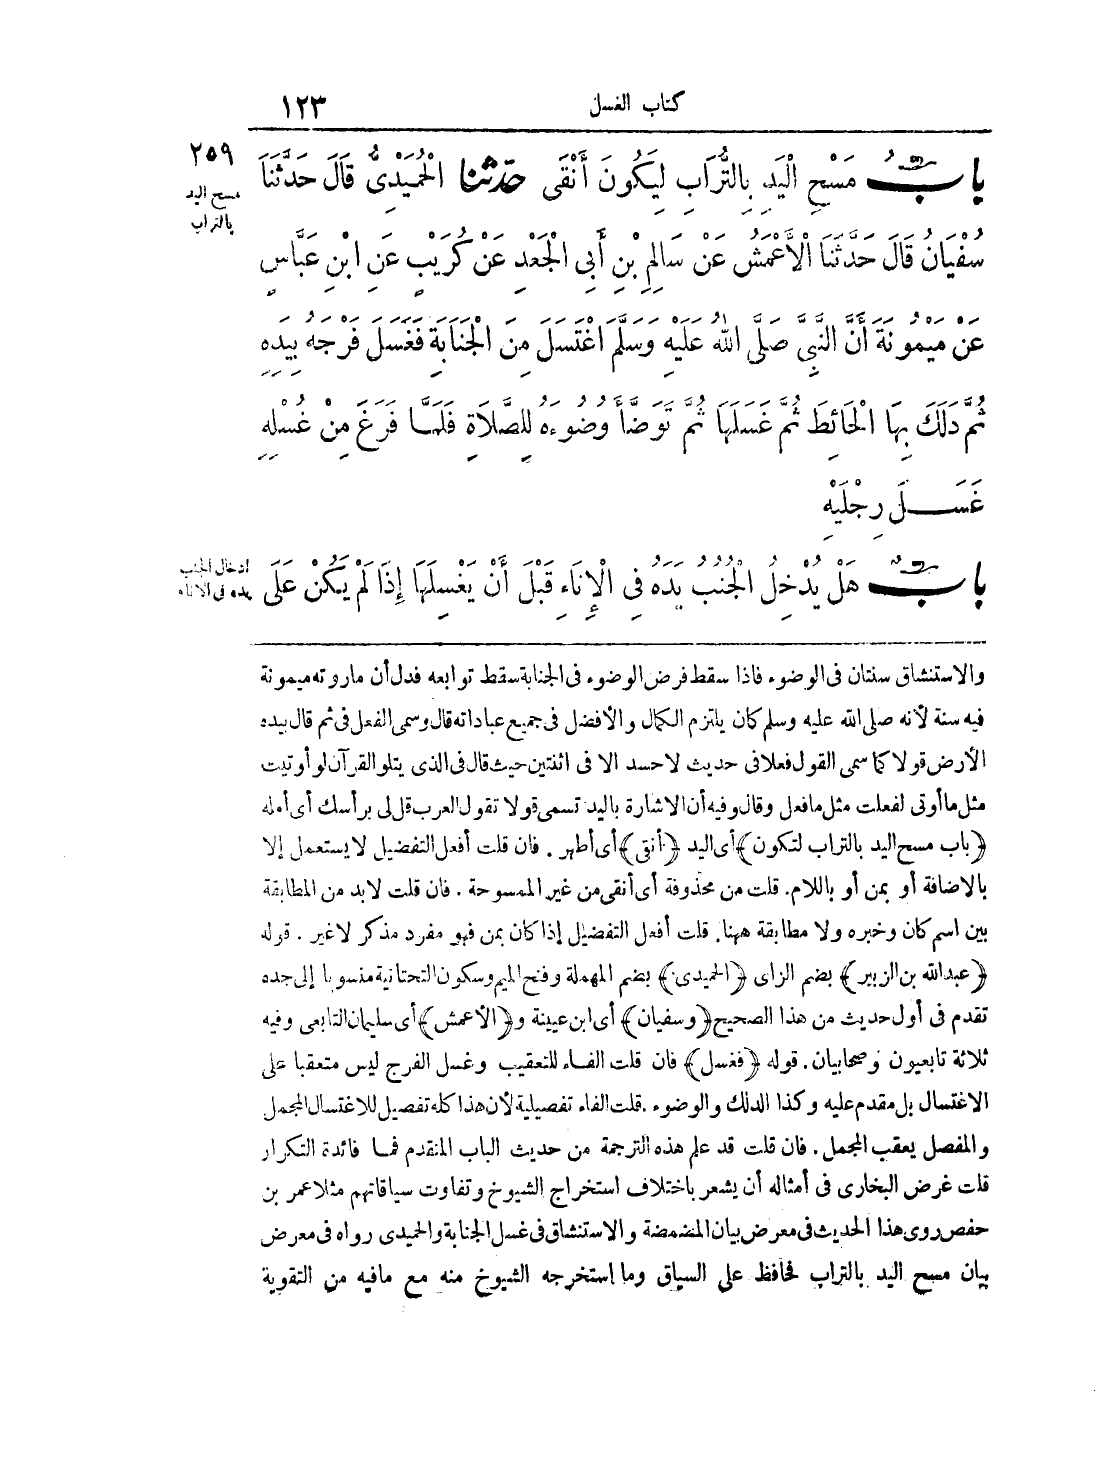 كتاب الغسل ١٢٣
٢٥٩
مسح اليد
بالتراب
بابُ مَسْحِ الْيَدِ بِالتُّرَابِ لِيَكُونَ أَنْقَى حدثنا الْحُمَيْدِىُّ قَالَ حَدَّثَنَا
سُفْيَانُ قَالَ حَدَّثَنَا الْأَعْمَشُ عَنْ سَالِمِ بْنِ أَبِى الْجَعْدِ عَنْ كُرَيْبٍ عَنِ ابْنِ عَبَّاسٍ
عَنْ مَيْمُونَةَ أَنَّ النَّبِىَّ صَلَّى اللهُ عَلَيْهِ وَسَلَّمَ اغْتَسَلَ مِنَ الْجَنَابَةِ فَغَسَلَ فَرْجَهُ بِيَدِهِ
ثُمَّ دَلَكَ بِهَا الْحَائِطَ ثُمَّ غَسَلَهَا ثُمَّ تَوَضَّأَ وُضُوءَهُ لِلصَّلَاةِ فَلَمَّا فَرَغَ مِنْ غُسْلِهِ
غَسَلَ رِجْلَيْهِ
ادخال الجنب
يده فى الاناء
بابٌ هَلْ يُدْخِلُ الْجُنُبُ يَدَهُ فِى الْإِنَاءِ قَبْلَ أَنْ يَغْسِلَهَا إِذَا لَمْ يَكُنْ عَلَى
والاستنشاق سنتان فى الوضوء فاذا سقط فرض الوضوء فى الجنابة سقط توابعه فدل أن ماروته ميمونة
فيه سنة لأنه صلى الله عليه وسلم كان يلتزم الكمال والأفضل فى جميع عباداته قال وسمى الفعل فى ثم قال بيده
الأرض قولا كما سمى القول فعلا فى حديث لاحسد الا فى اثنتين حيث قال فى الذى يتلو القرآن لو أوتيت
مثل ما أوتى لفعلت مثل مافعل وقال وفيه أن الاشارة باليد تسمى قولا تقول العرب قل لى برأسك أى أمله
﴿باب مسح اليد بالتراب لتكون﴾ أى اليد ﴿أنقى﴾ أى أطهر . فان قلت أفعل التفضيل لا يستعمل إلا
بالاضافة أو بمن أو باللام. قلت من محذوفة أى أنقى من غير الممسوحة . فان قلت لابد من المطابقة
بين اسم كان وخبره ولا مطابقة ههنا. قلت أفعل التفضيل إذا كان بمن فهو مفرد مذكر لاغير . قوله
﴿عبد الله بن الزبير﴾ بضم الزاى ﴿الحميدى﴾ بضم المهملة وفتح الميم وسكون التحتانية منسوبا إلى جده
تقدم فى أول حديث من هذا الصحيح ﴿وسفيان﴾ أى ابن عيينة و﴿الأعمش﴾ أى سليمان التابعى وفيه
ثلاثة تابعيون وصحابيان. قوله ﴿فغسل﴾ فان قلت الفاء للتعقيب وغسل الفرج ليس متعقبا على
الاغتسال بل مقدم عليه وكذا الدلك والوضوء .قلت الفاء تفصيلية لأن هذا كله تفصيل للاغتسال المجمل
والمفصل يعقب المجمل. فان قلت قد علم هذه الترجمة من حديث الباب المتقدم فما فائدة التكرار
قلت غرض البخارى فى أمثاله أن يشعر باختلاف استخراج الشيوخ وتفاوت سياقاتهم مثلا عمر بن
حفص روى هذا الحديث فى معرض بيان المضمضة والاستنشاق فى غسل الجنابة والحميدى رواه فى معرض
بيان مسح اليد بالتراب فحافظ على السياق وما استخرجه الشيوخ منه مع مافيه من التقوية